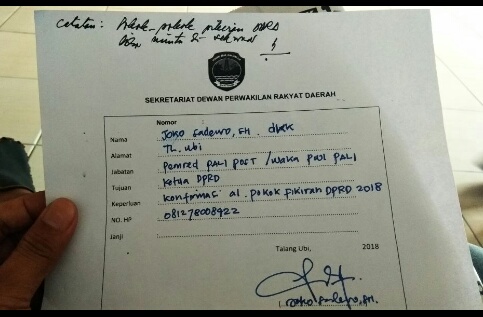 Catatan: Pokok-pokok pikiran DPRD
SEKRETARIAT DEWAN PERWAKILAN RAKYAT DAERAH
Nomor
Nama Joko Sadewo, SH. dkk
Alamat TL. ubi
Jabatan Pemred PALI POST / Waka PWI PALI
Tujuan Ketua DPRD
Keperluan Konfirmasi al. pokok Fikiran DPRD 2018
NO. HP 081278008922
Janji
Talang Ubi, 2018
Joko Sadewo, SH.